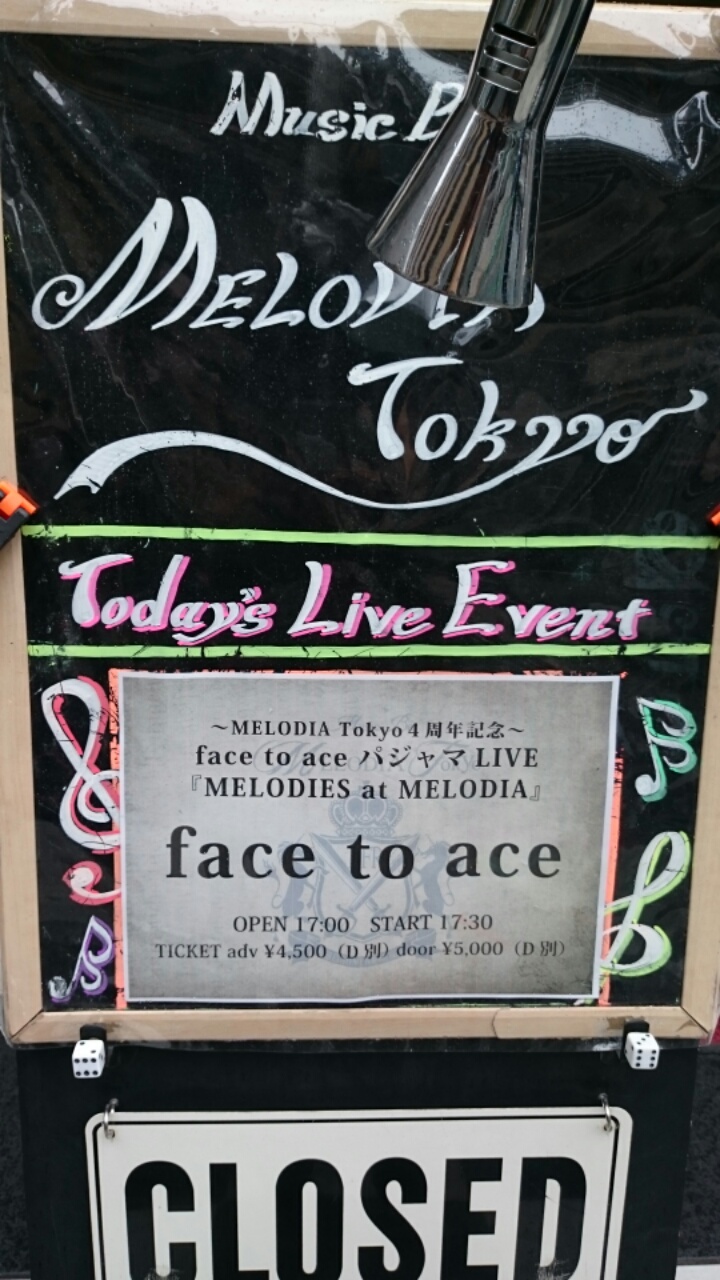 Music
MELODIA
Tokyo
Today's Live Event
～MELODIA Tokyo 4周年記念～
face to ace パジャマ LIVE
『MELODIES at MELODIA』
face to ace
OPEN 17:00 START 17:30
TICKET adv ¥4,500（D別）door ¥5,000（D別）
CLOSED